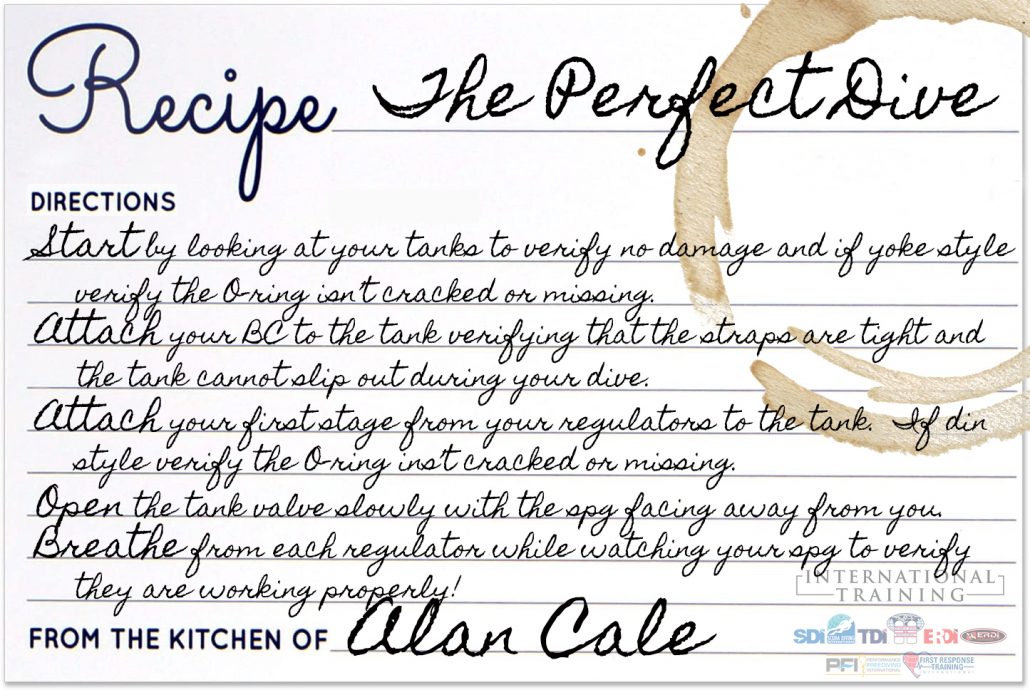 Recipe The Perfect Dive
DIRECTIONS
Start by looking at your tanks to verify no damage and if yoke style
verify the O-ring isn't cracked or missing.
Attach your BC to the tank verifying that the straps are tight and
the tank cannot slip out during your dive.
Attach your first stage from your regulators to the tank. If din
style verify the O-ring ins't cracked or missing.
Open the tank valve slowly with the spg facing away from you.
Breathe from each regulator while watching your spg to verify
they are working properly!
INTERNATIONAL
TRAINING
FROM THE KITCHEN OF Alan Cale
SDI SCUBA DIVING INTERNATIONAL TDI ERDi
PFI PERFORMANCE FREEDIVING INTERNATIONAL FIRST RESPONSE TRAINING INTERNATIONAL